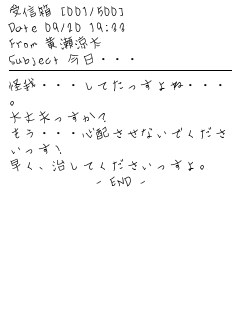 受信箱 [001/500]
Date 09/20 19:33
From 黄瀬涼太
Subject 今日・・・
怪我・・・してたっすよね・・・
。
大丈夫っすか?
もう・・・心配させないでくださ
いっす!
早く、治してくださいっすよ。
- END -